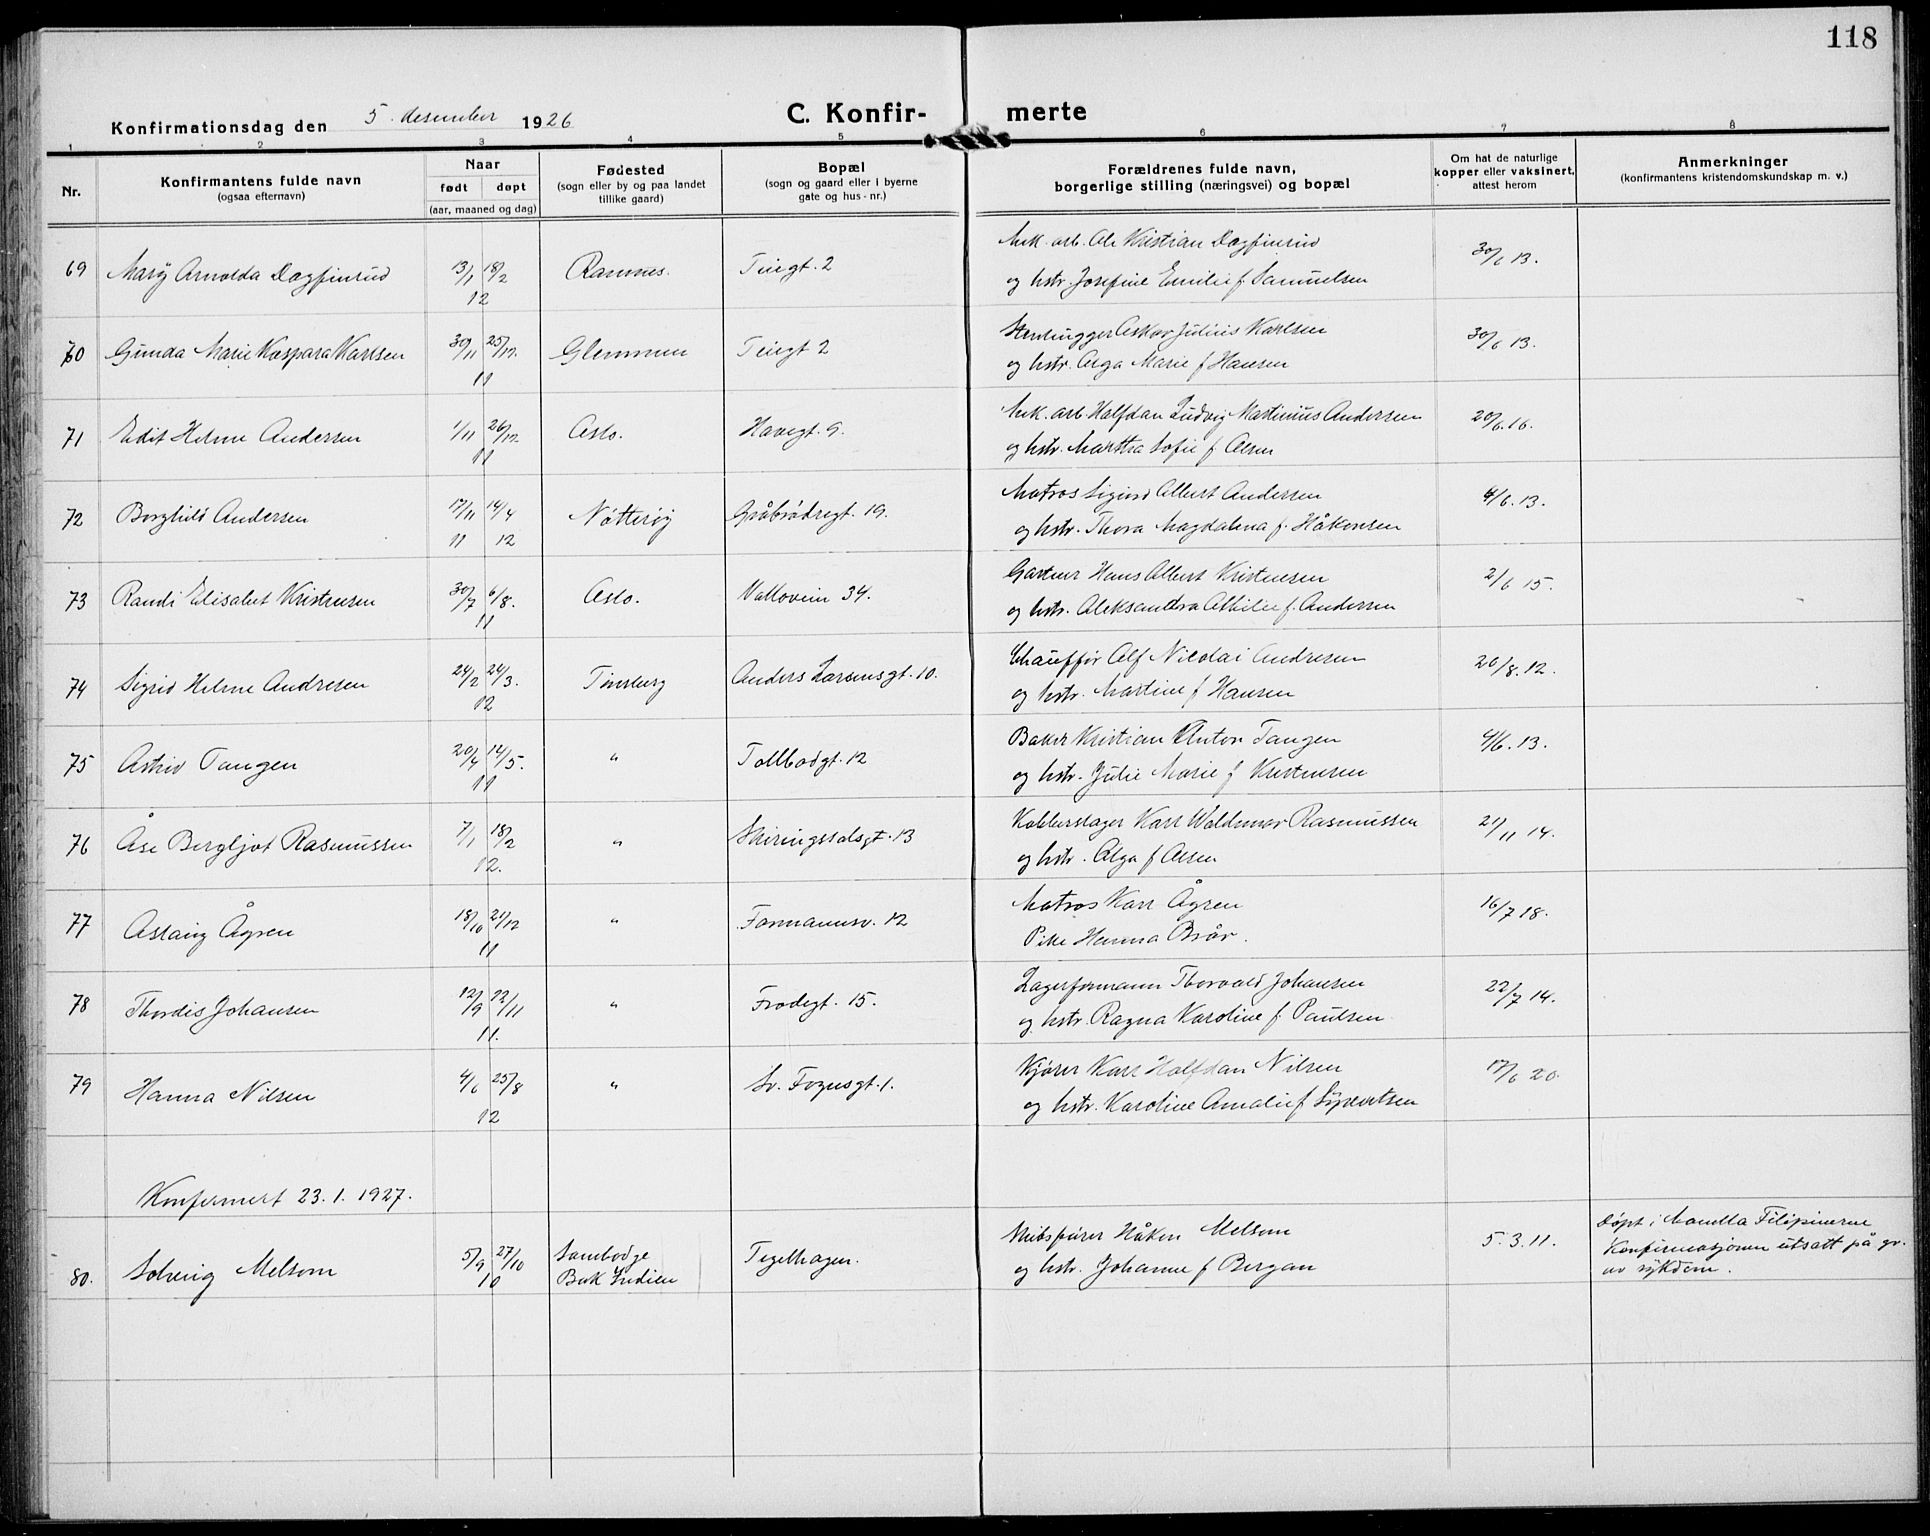 118
Konfirmationsdag den 5. desember 1926
C. Konfir- merte
1 2 3 4 5 6 7 8
Nr.
Konfirmantens fulde navn
(ogsaa efternavn)
Naar
født døpt
(aar, maaned og dag)
Fødested
(sogn eller by og paa landet
tillike gaard)
Bopæl
(sogn og gaard eller i byerne
gate og hus-nr.)
Forældrenes fulde navn,
borgerlige stilling (næringsvei) og bopæl
Om hat de naturlige
kopper eller vaksinert,
attest herom
Anmerkninger
(konfirmantens kristendomskundskap m. v.)
69 Mary Arnolda Dagfinrud 13/1 18/2 12 Ramnes. Teiegt. 2
Mek. arb. Ole Kristian Dagfinrud
og hstr. Josefine Emilie f. Samuelsen 30/6 13.
70 Gunda Marie Kaspara Karlsen 30/11 25/12. 11 Glemmen Teiegt 2
Stenhugger Oskar Julius Karlsen
og hstr. Olga Marie f Hansen 30/6 13.
71 Edit Helene Andersen 1/11 26/12 11 Oslo. Havegt. 9.
Mek. arb. Halfdan Ludvig Martinius Andersen
og hstr. Martha Sofie f Olsen 20/6. 16.
72 Borghild Andersen 17/11 11 14/4 12 Nøtterøy Gråbrødregt. 19.
Matros Sigurd Albert Andersen
og hstr. Thora Magdalena f. Håkonsen 4/6. 13.
73 Randi Elisabet Kristensen 30/7 6/8. 11 Oslo. Valloveien 34.
Gartner Hans Albert Kristensen
og hstr. Aleksandra Othilie f. Andersen 2/6 15.
74 Sigrid Helene Andresen 24/2 24/3. 12 Tønsberg Anders Larsensgt. 10.
Chauffør Alf Nicolai Andresen
og hstr. Martine f Hansen 20/8. 12.
75 Astrid Tangen 20/4 14/5. 11 " Tollbodgt. 12
Baker Kristian Anton Tangen
og hstr. Julie Marie f Kristensen 4/6. 13.
76 Åse Bergljot Rasmussen 7/1 18/2 12. " Skiringssalsgt. 13
Kobberslager Karl Waldemar Rasmussen
og hstr. Olga f Olsen 21/11 14.
77 Aslaug Ågren 18/10 21/12 11 " Formannsv. 12
Matros Karl Ågren
Pike Hanna Brår. 16/7 18.
78 Thordis Johansen 12/9 12/11 11. " Frodegt. 15.
Lagerformann Thorvald Johansen
og hstr. Ragna Karoline f. Paulsen. 22/7 14.
79 Hanna Nilsen 4/6 25/8 12 " Sv. Foynsgt. 1.
Kjører Karl Halfdan Nilsen
og hstr. Karoline Amalie f Syvertsen 17/6 20.
Konfermert 23. 1. 1927.
80. Solveig Melsom 5/9 27/10 10 Tegelhagen.
Skibsfører Håken Melsom
og hstr. Johanne f Bergan 5. 3. 11.
Døpt i Manilla Filipinerne
Konfirmasjonen utsatt på gr.
av sykdom.